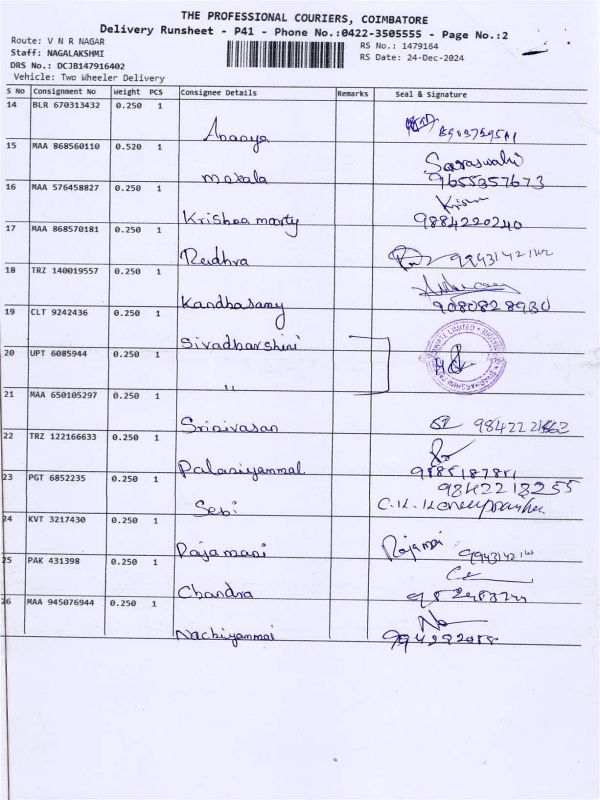 THE PROFESSIONAL COURIERS, COIMBATORE
Delivery Runsheet - P41 - Phone No.:0422-3505555 - Page No.:2
Route: V N R NAGAR
RS No.: 1479164
Staff: NAGALAKSHMI
RS Date: 24-Dec-2024
DRS No.: DCJB147916402
Vehicle: Two Wheeler Delivery
S No Consignment No Weight PCS Consignee Details Remarks Seal & Signature
14 BLR 670313432 0.250 1
Ananya
15 MAA 868560110 0.520 1 Saraswathi
Mekala 9655357673
16 MAA 576458827 0.250 1
Krishna moorty 9884220240
17 MAA 868570181 0.250 1
Rudhra
18 TRZ 140019557 0.250 1
Kandhasamy 9080828930
19 CLT 9242436 0.250 1
Sivadharshini
20 UPT 6085944 0.250 1
"
21 MAA 650105297 0.250 1
Srinivasan
22 TRZ 122166633 0.250 1
Palaniyammal
23 PGT 6852235 0.250 1 9842213255
Sebi
24 KVT 3217430 0.250 1
Rajamani Rajamani
25 PAK 431398 0.250 1
Chandra
26 MAA 945076944 0.250 1
Nachiyammai